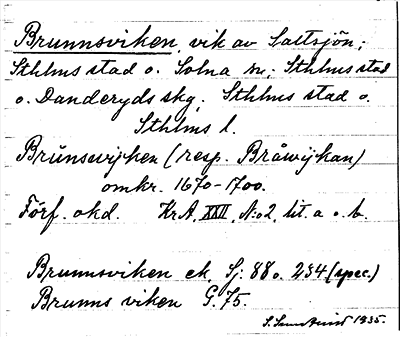 Brunnsviken, vik av Saltsjön;
Sthlms stad o. Solna sn; Sthlms stad
o. Danderyds skg. Sthlms stad o.
Sthlms l.
Brůnswijken (resp. Bråwijkan)
omkr. 1670-1700.
Förf. okd. KrA, XXII, N:o 2, lit. a o. b.
Brunnsviken ek. Sj: 88 o. 234 (spec.)
Brunns viken G. 75.
S. 1935.